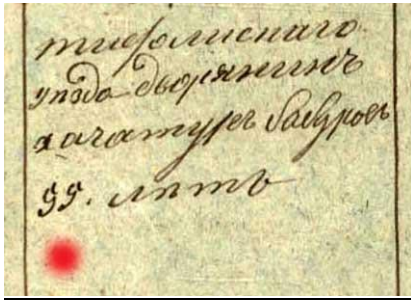 тифлискаго
уѣзда дворянинъ
хачатуръ бабуровъ
95. лѣтъ